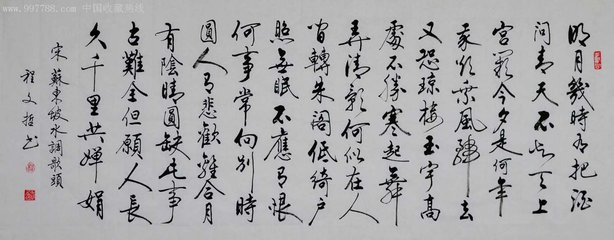 www.997788.com 中国收藏热线
明月幾時有把酒
问青天不知天上
宮闕今夕是何年
我欲乘風歸去
又恐琼樓玉宇高
處不勝寒起舞
弄清影何似在人
间轉朱阁低綺户
照無眠不應有恨
何事常向别時
圓人有悲歡離合月
有陰晴圓缺此事
古難全但願人長
久千里共嬋娟
宋蘇東坡水調歌頭
程文哲书